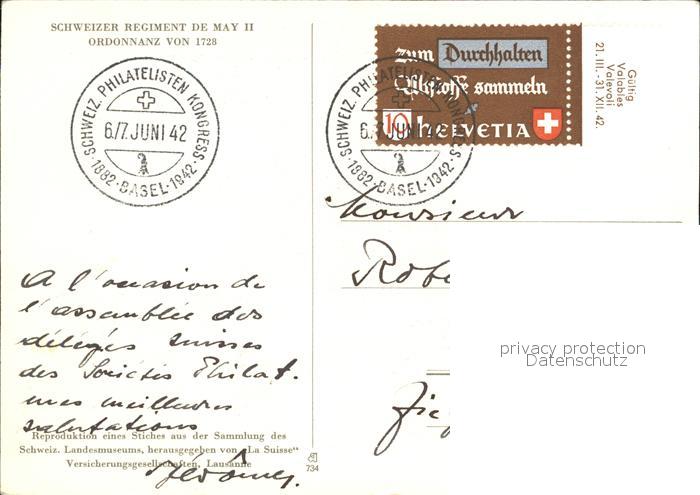 SCHWEIZER REGIMENT DE MAY II
ORDONNANZ VON 1728
SCHWEIZ. PHILATELISTEN KONGRESS
6./7. JUNI 42
· 1882 · BASEL · 1942 ·
SCHWEIZ. PHILATELISTEN KONGRESS
6./7. JUNI 42
· 1882 · BASEL · 1942 ·
Zum Durchhalten
Altstoffe sammeln
10 HELVETIA
Gültig
Valables
Valevoli
21. III. - 31. XII. 42.
Monsieur
Robe
A l'occasion de
l'assemblée des
délégés suisses
des Sociétés Philat.
mes meilleures
salutations
Jérôme
privacy protection
Datenschutz
Reproduktion eines Stiches aus der Sammlung des
Schweiz. Landesmuseums, herausgegeben von „La Suisse"
Versicherungsgesellschaften, Lausanne
734